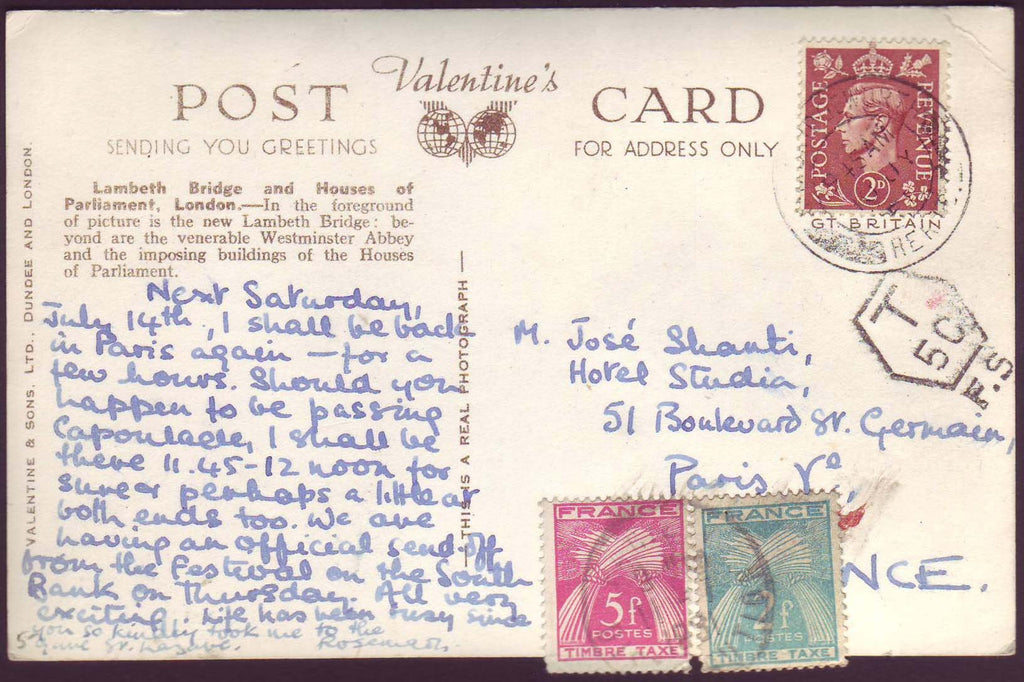 Valentine's
POST CARD
SENDING YOU GREETINGS
FOR ADDRESS ONLY
Lambeth Bridge and Houses of
Parliament, London.—In the foreground
of picture is the new Lambeth Bridge: be-
yond are the venerable Westminster Abbey
and the imposing buildings of the Houses
of Parliament.
Next Saturday,
July 14th, I shall be back
in Paris again — for a
few hours. Should you
happen to be passing
Capoulade, I shall be
there 11.45-12 noon for
sure perhaps a little at
both ends too. We are
having an official send off
from the Festival on the South
Bank on Thursday. All very
exciting. Life has been busy since
you so kindly took me to the
Gare St. Lazare. Rosemary.
VALENTINE & SONS. LTD., DUNDEE AND LONDON.
—THIS IS A REAL PHOTOGRAPH—
M. José Shanti,
Hotel Studia,
51 Boulevard St. Germain,
Paris Ve,
NCE.
POSTAGE REVENUE
2D
GT. BRITAIN
T
50
P.S
FRANCE
5f
POSTES
TIMBRE TAXE
FRANCE
f
POSTES
TIMBRE TAXE